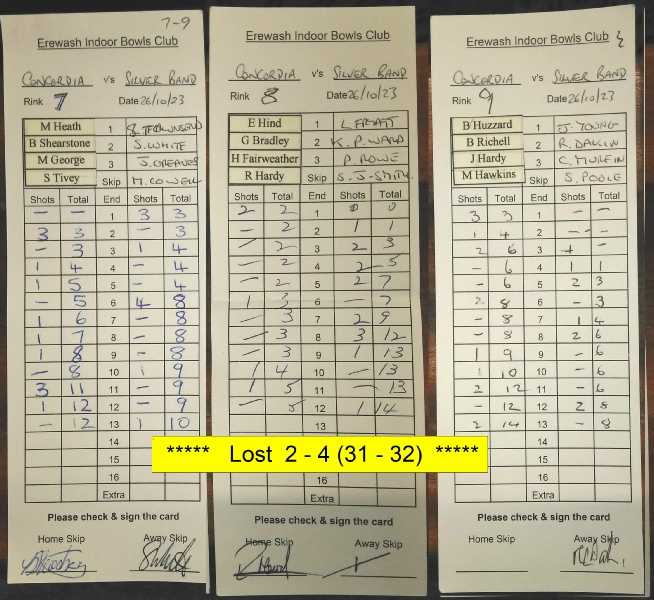 7-9
Erewash Indoor Bowls Club
CONCORDIA v's SILVER BAND
Rink 7 Date 26/10/23
M Heath 1
B Shearstone 2 S. WHITE
M George 3 J. GREAVES
S Tivey Skip M. COWELL
Shots Total End Shots Total
— — 1 3 3
3 3 2 — 3
— 3 3 1 4
1 4 4 — 4
1 5 5 — 4
— 5 6 4 8
1 6 7 — 8
1 7 8 — 8
1 8 9 — 8
— 8 10 1 9
3 11 11 — 9
1 12 12 — 9
— 12 13 1 10
14
15
16
Extra
Please check & sign the card
Home Skip Away Skip
Erewash Indoor Bowls Club
CONCORDIA v's SILVER BAND
Rink 8 Date 26/10/23
E Hind 1 L. PRATT
G Bradley 2 K. P. WARD
H Fairweather 3 P. ROWE
R Hardy Skip S. J-SMITH
Shots Total End Shots Total
2 2 1 0 0
— 2 2 1 1
— 2 3 2 3
— 2 4 2 5
— 2 5 2 7
1 3 6 — 7
— 3 7 2 9
— 3 8 3 12
— 3 9 1 13
1 4 10 — 13
1 5 11 — 13
— 5 12 1 14
13
***** Lost 2 - 4 (31 - 32) *****
16
Extra
Please check & sign the card
Home Skip Away Skip
Erewash Indoor Bowls Club
CONCORDIA v's SILVER BAND
Rink 9 Date 26/10/23
B Huzzard 1 J. YOUNG
B Richell 2 R. DAKIN
J Hardy 3
M Hawkins Skip S. POOLE
Shots Total End Shots Total
3 3 1 — —
1 4 2 — —
2 6 3 —
— 6 4 1 1
— 6 5 2 3
2 8 6 — 3
— 8 7 1 4
— 8 8 2 6
1 9 9 — 6
1 10 10 — 6
2 12 11 — 6
— 12 12 2 8
2 14 13 — 8
14
15
16
Extra
Please check & sign the card
Home Skip Away Skip